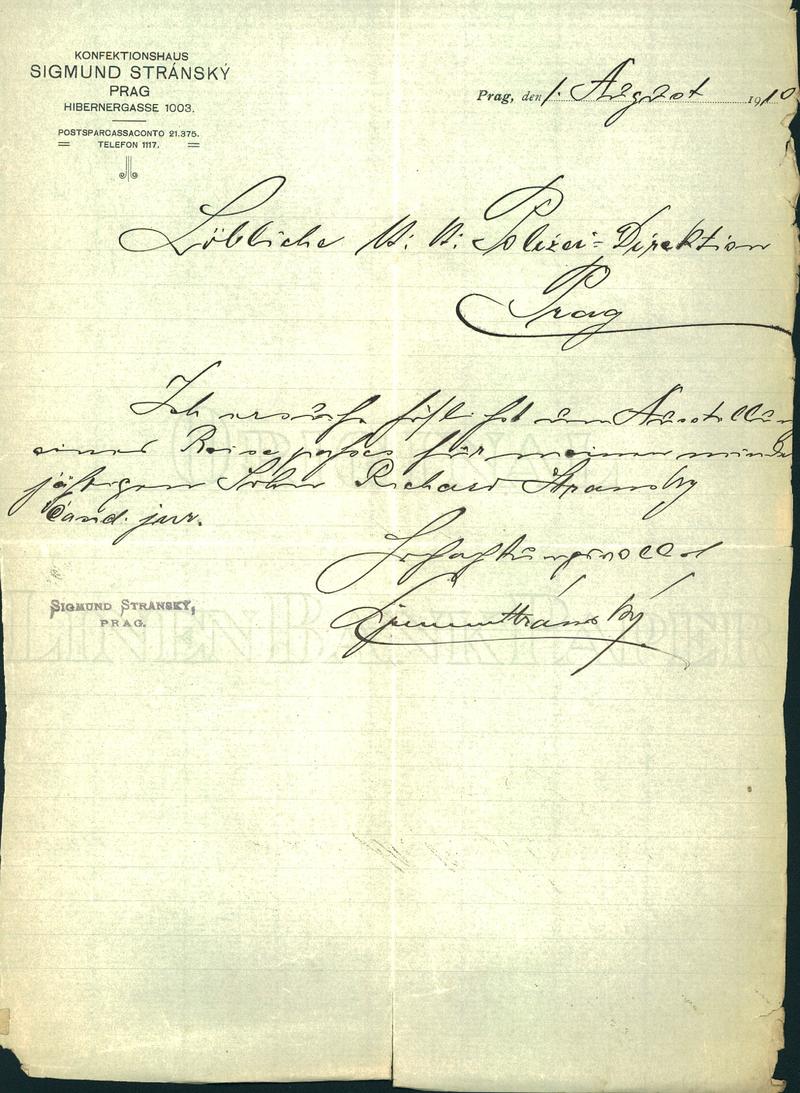 KONFEKTIONSHAUS
SIGMUND STRÁNSKÝ
PRAG
HIBERNERGASSE 1003.
POSTSPARCASSACONTO 21.375.
TELEFON 1117.
Prag, den 1. August 1910
Löbliche k. k. Polizei-Direktion
Prag
Ich ersuche höflichst um Ausstellung
eines Reisepasses für meinen minder
jährigen Sohn Richard Stransky
Cand. jur.
Hochachtungsvollst
Sigmund Stránský
SIGMUND STRÁNSKÝ,
PRAG.
ORIGINAL
LINEN BANK PAPER